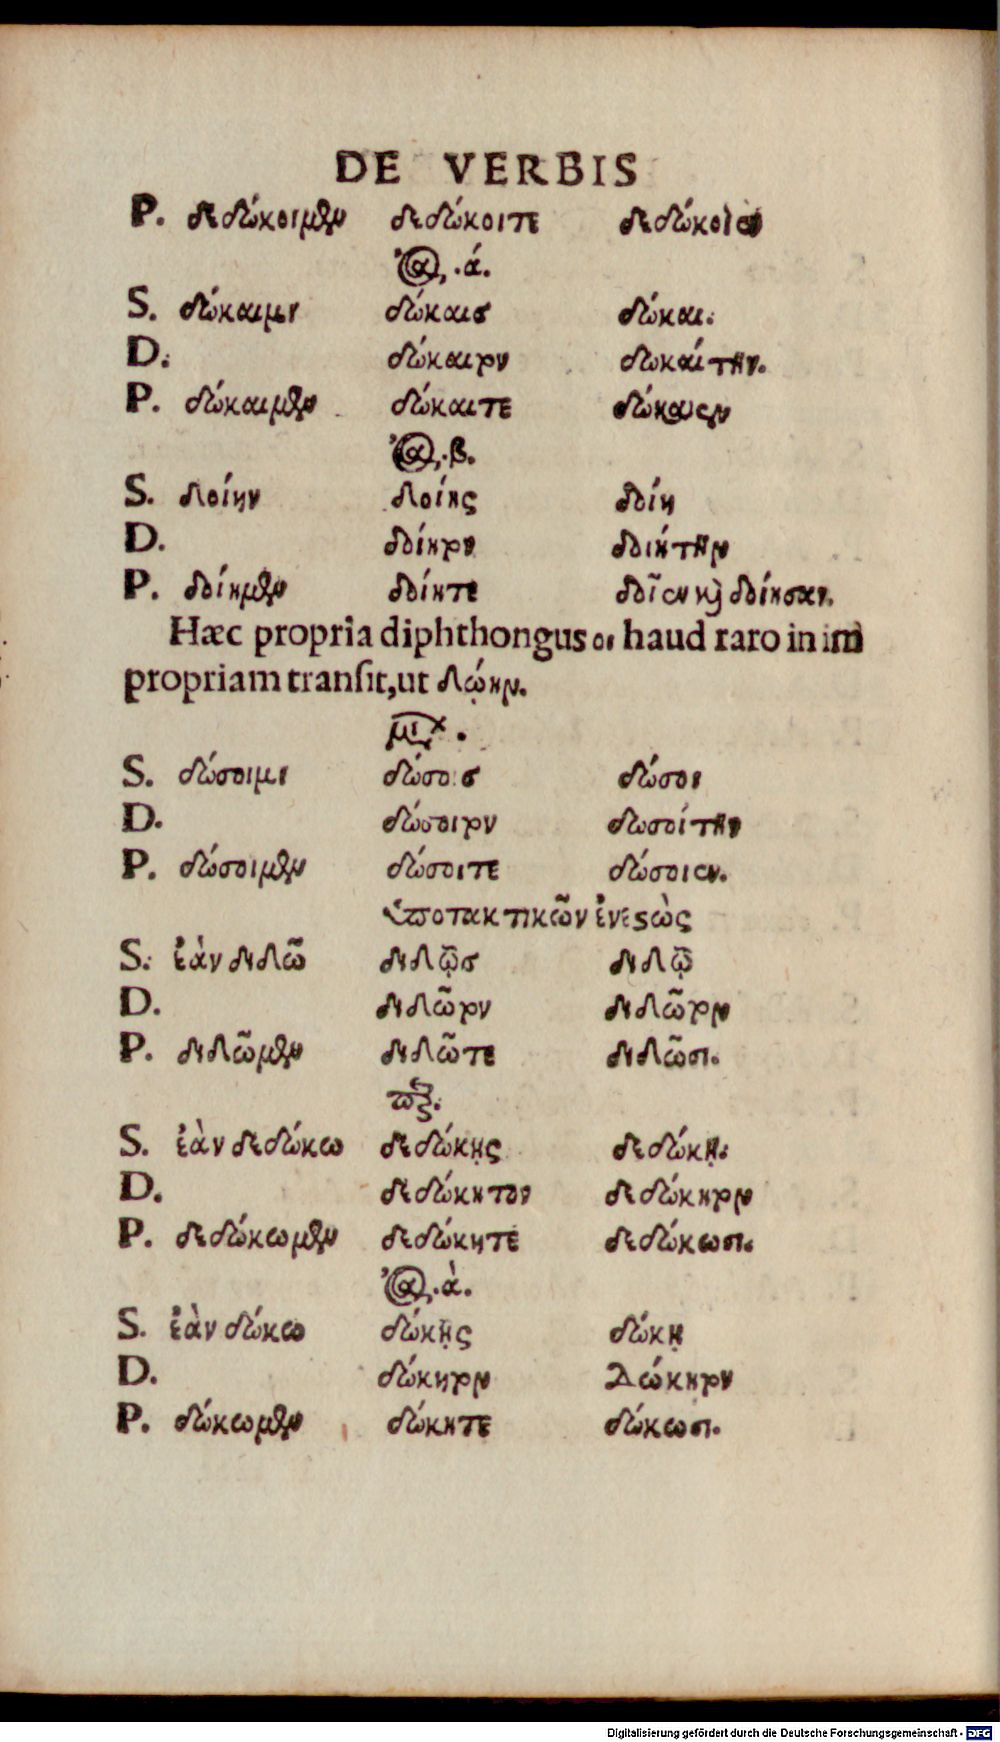 DE VERBIS
P. δεδώκοιμεν δεδώκοιτε δεδώκοιεν
ἀό. ά.
S. δώκαιμι δώκαισ δώκαι.
D. δώκαιτον δωκαίτην.
P. δώκαιμεν δώκαιτε δώκαιεν
ἀό. β.
S. δοίην δοίης δοίη
D. δοίητον δοιήτην
P. δοίημεν δοίητε δοῖεν καὶ δοίησαν.
Hæc propria diphthongus οι haud raro in im
propriam transit, ut δῴην.
S. δώσοιμι δώσοισ δώσοι
D. δώσοιτον δωσοίτην
P. δώσοιμεν δώσοιτε δώσοιεν.
Ὑποτακτικῶν ἐνεστὼς
S. ἐὰν διδῶ διδῷσ διδῷ
D. διδῶτον διδῶτον
P. διδῶμεν διδῶτε διδῶσι.
S. ἐὰν δεδώκω δεδώκῃς δεδώκῃ.
D. δεδώκητον δεδώκητον
P. δεδώκωμεν δεδώκητε δεδώκωσι.
ἀό. ὰ.
S. ἐὰν δώκω δώκῃς δώκῃ
D. δώκητον δώκητον
P. δώκωμεν δώκητε δώκωσι.
Digitalisierung gefördert durch die Deutsche Forschungsgemeinschaft - DFG